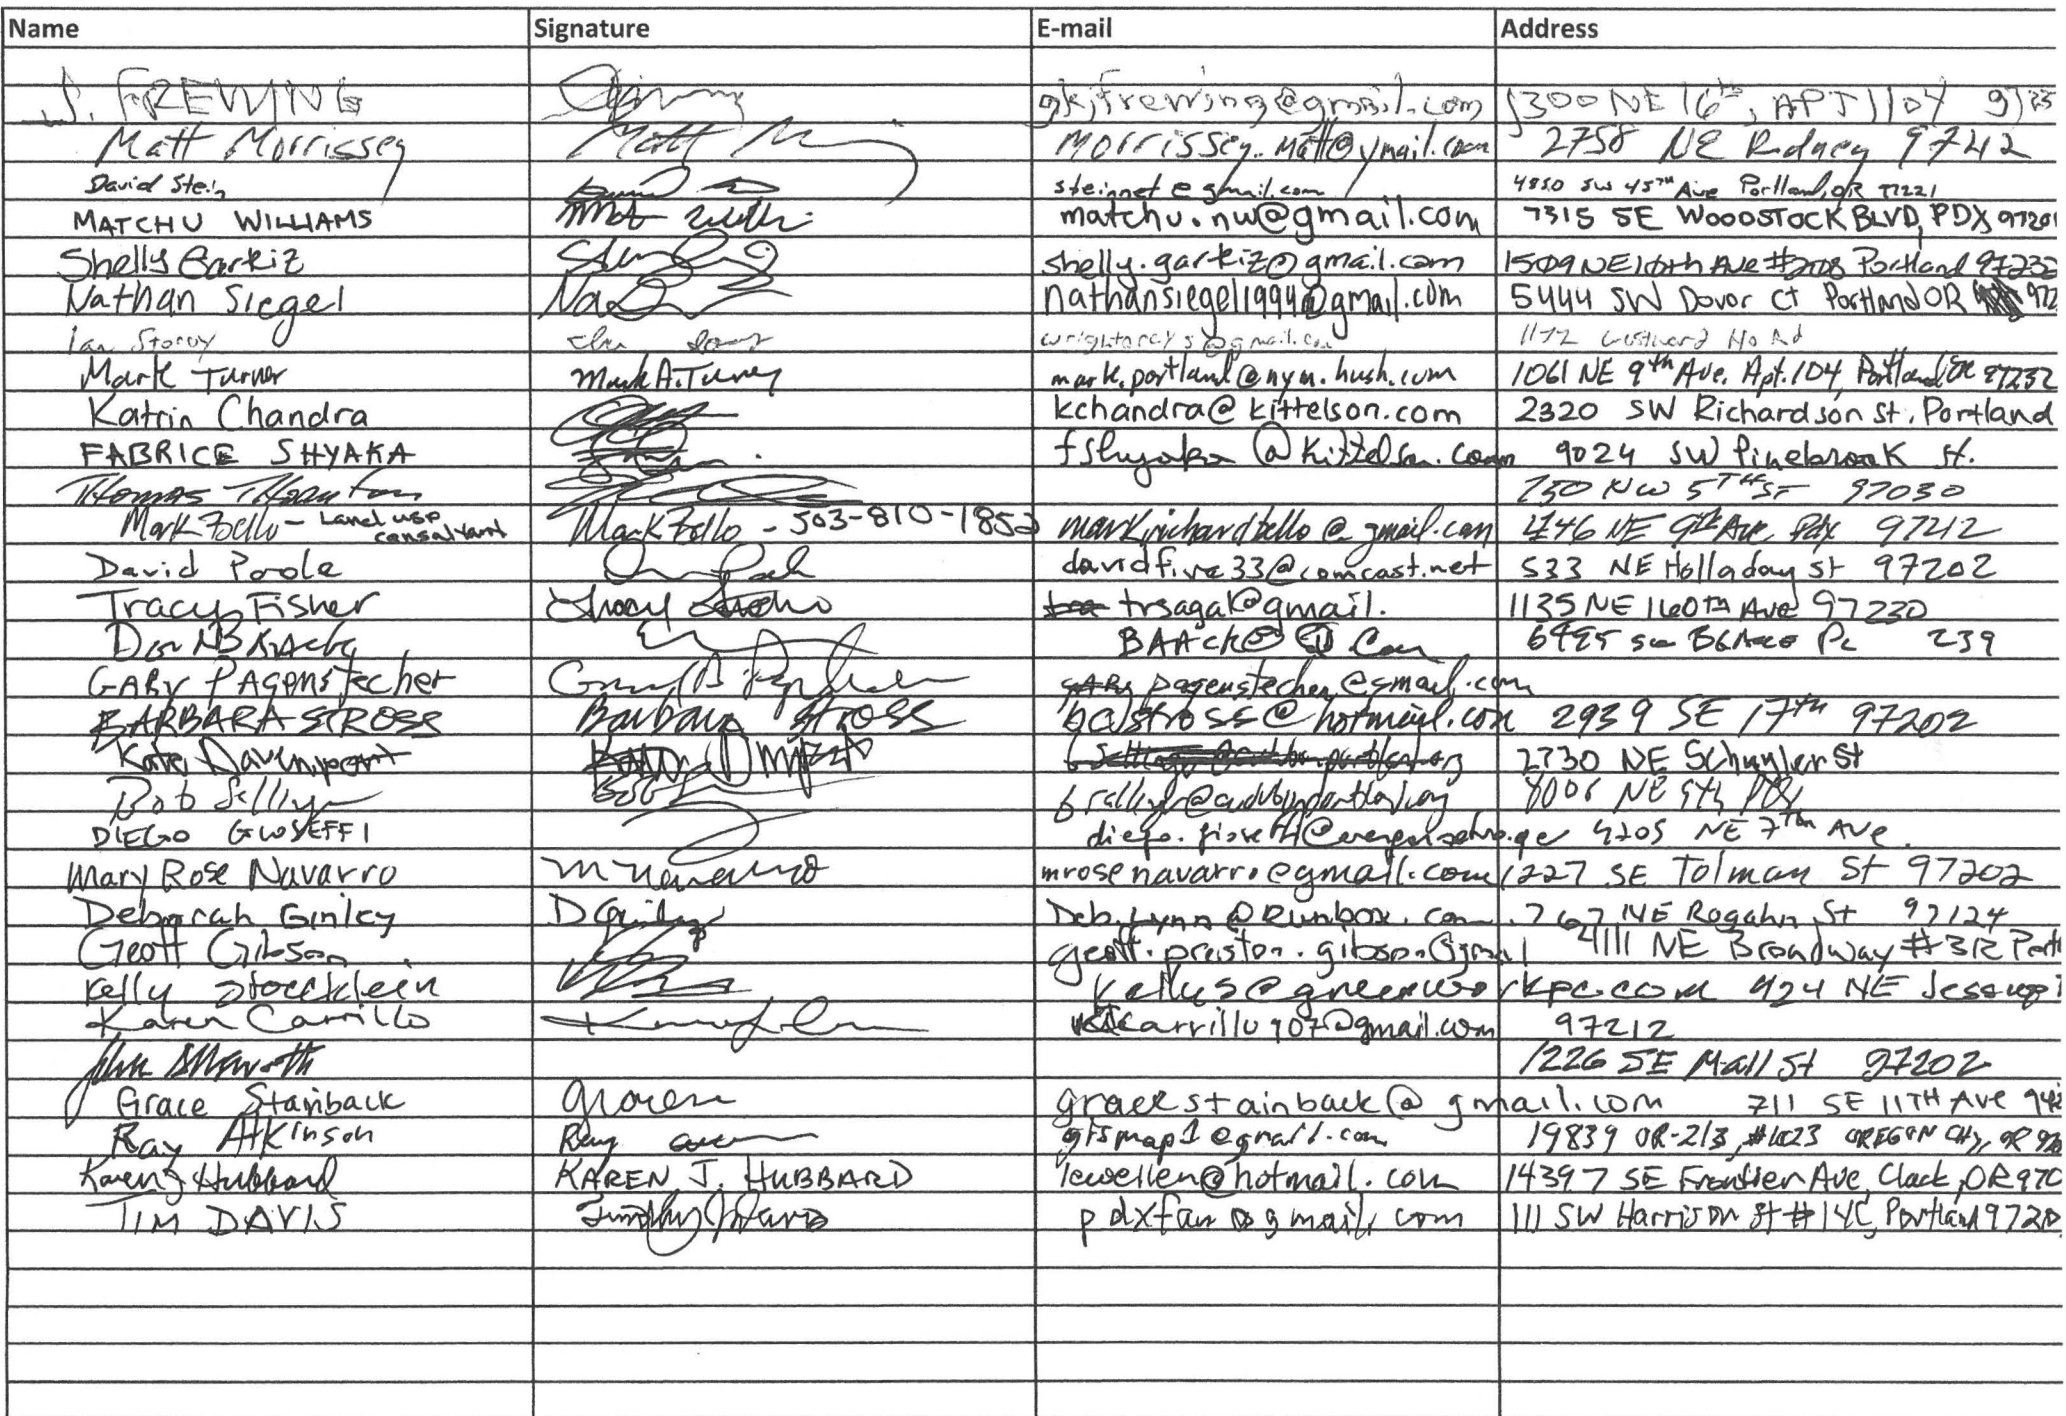 Name Signature E-mail Address
J. FREWING gkjfrewing@gmail.com 1300 NE 16th, APT 1104
Matt Morrissey Matt M morrissey.matt@ymail.com 2758 NE Rodney 97212
David Stein steinnet@gmail.com 4850 SW 45th Ave Portland, OR 97221
MATCHU WILLIAMS matchu.nw@gmail.com 7315 SE WOODSTOCK BLVD, PDX 9720
Shelly Garkiz shelly.garkiz@gmail.com 1509 NE 10th Ave #208 Portland 97232
Nathan Siegel nathansiegel1994@gmail.com 5444 SW Dover Ct Portland OR 972
Ian Storey Rd
Mark Turner Mark A. Turner mark.portland@nym.hush.com 1061 NE 9th Ave. Apt. 104, Portland, OR 97232
Katrin Chandra kchandra@kittelson.com 2320 SW Richardson St, Portland
FABRICE SHYAKA fshyaka@kittelson.com 9024 SW Pinebrook St.
Thomas Thornton 750 NW 5TH ST 97030
Mark Bello - Land use consultant Mark Bello - 503-810-1852 markrichardbello@gmail.com 4446 NE 9th Ave, Pdx 97212
David Poole davidfive33@comcast.net 533 NE Holladay St 97202
Tracy Fisher trsagal@gmail. 1135 NE 160th Ave 97230
Don Baack BAAck@ .Com 6495 SW 239
GARY PAgenstecher pagenstecher@gmail.com
BARBARA STROSS Barbara STROSS bastross@hotmail.com 2939 SE 17th 97202
Kate Davenport 2730 NE Schuyler St
Bob Sallinger NE 9th PDX
DIEGO GIOSEFFI 4205 NE 7th AVE
Mary Rose Navarro mrosenavarro@gmail.com 1227 SE Tolman St 97202
Deborah Ginley Deb.Lynn@Runbox.com 767 NE Rogahn St 97124
Geoff Gibson geoff.preston.gibson@gmail 4111 NE Broadway #312 Portl
Kelly Stoecklein kellys@greenworkpc.com 424 NE Jessup
Karen Carrillo carrillo907@gmail.com 97212
John 1226 SE Mall St 97202
Grace Stainback gracestainback@gmail.com 711 SE 11TH AVE
Ray Atkinson Ray gismap1@gmail.com 19839 OR-213, #1023 OREGON City, OR
Karen J Hubbard KAREN J. HUBBARD lewellen@hotmail.com 14397 SE Frontier Ave, Clack, OR 970
TIM DAVIS Timothy J Davis pdxfan@gmail.com 111 SW Harrison St #14C, Portland 9720